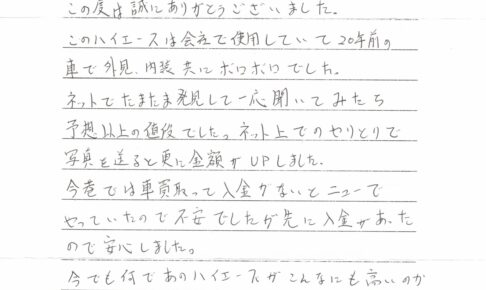 この度は誠にありがとうございました。
このハイエースは会社で使用していて20年前の
車で外見、内装共にボロボロでした。
ネットでたまたま発見して一応聞いてみたら
予想以上の値段でしたっネット上でのやりとりで
写真を送ると更に金額がUPしました。
今巷では車買取って入金がないとニュースで
やっていたので不安でしたが先に入金があった
ので安心しましたっ
今でも何であのハイエースがこんなにも高いのか